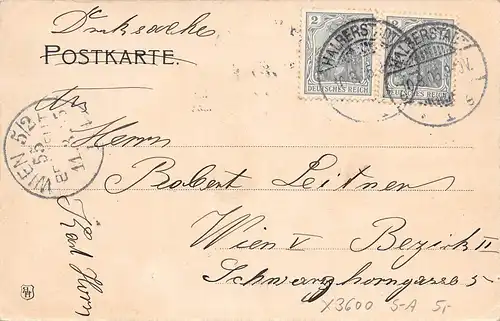 Drucksache
POSTKARTE.
2
DEUTSCHES REICH
2
DEUTSCHES REICH
HALBERSTADT
HALBERSTADT
WIEN 5/2
An
Herrn
Robert Leitner
Wien V Bezirk II
Schwarzhorngasse 5
Karl
X3600 S-A 5,-